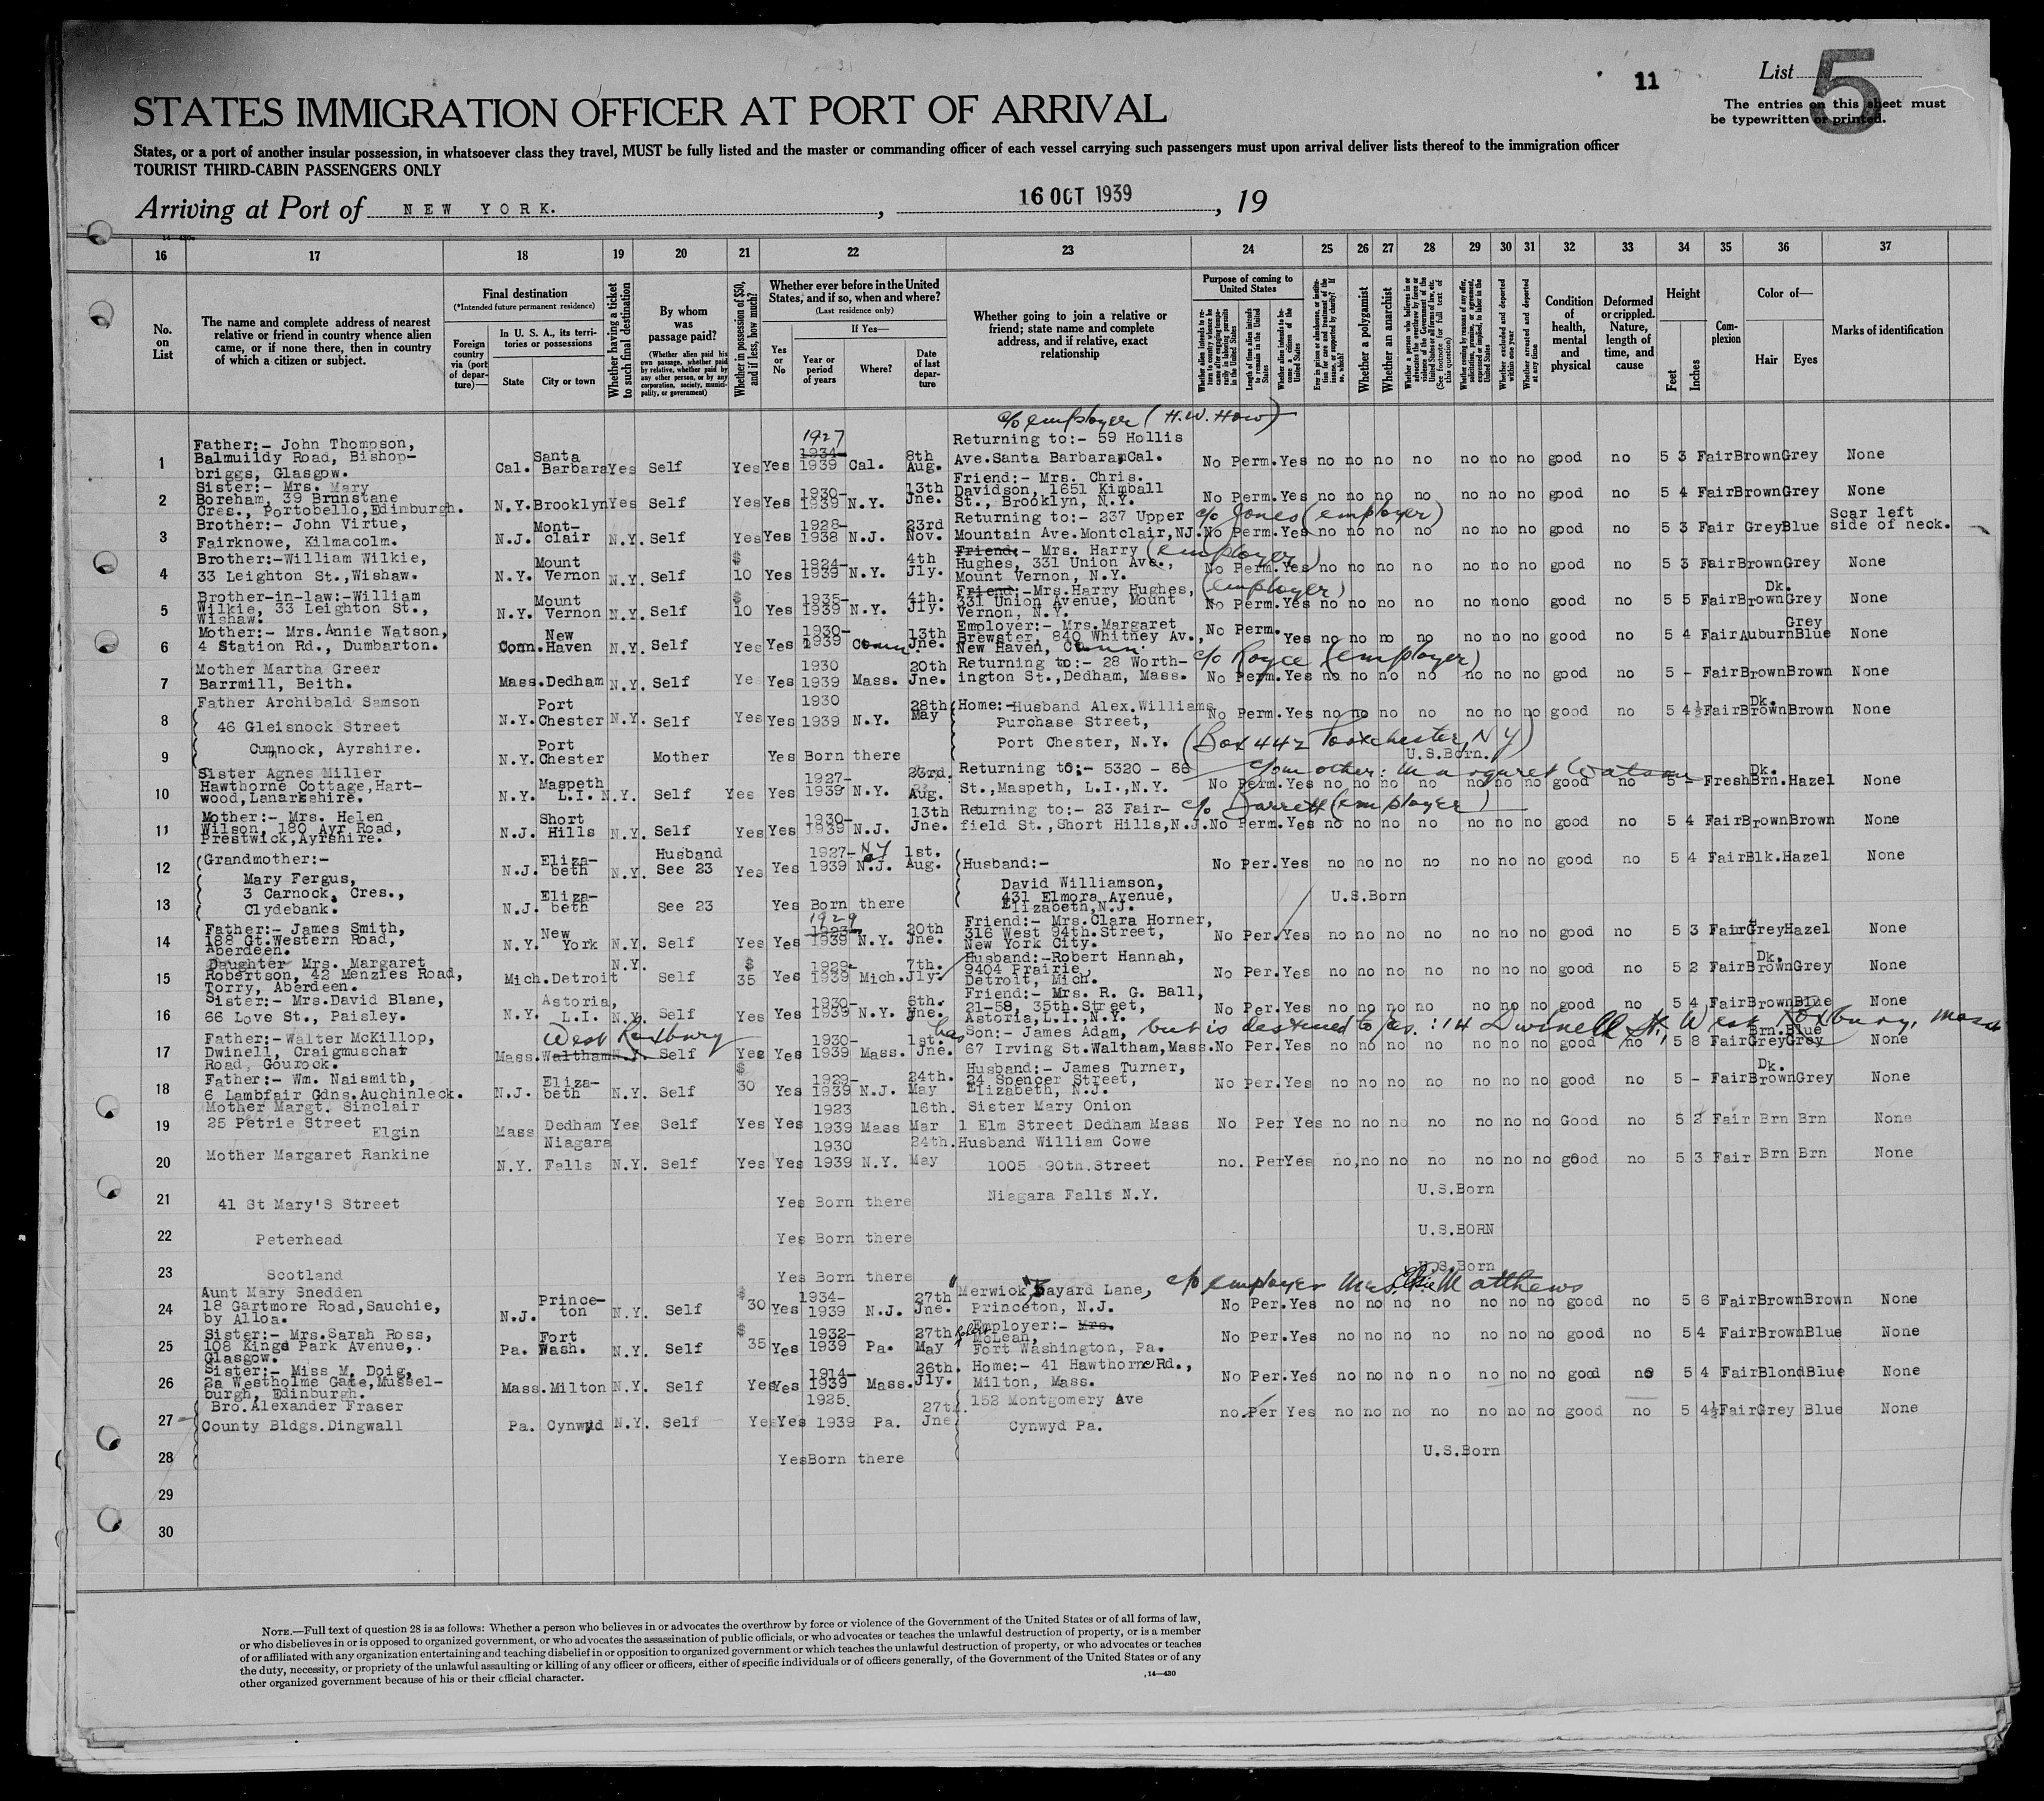 11
List 5
The entries on this sheet must
be typewritten or printed.
STATES IMMIGRATION OFFICER AT PORT OF ARRIVAL
States, or a port of another insular possession, in whatsoever class they travel, MUST be fully listed and the master or commanding officer of each vessel carrying such passengers must upon arrival deliver lists thereof to the immigration officer
TOURIST THIRD-CABIN PASSENGERS ONLY
Arriving at Port of NEW YORK. , 16 OCT 1939 , 19
16 17 18 19 20 21 22 23 24 25 26 27 28 29 30 31 32 33 34 35 36 37
No. on List
The name and complete address of nearest relative or friend in country whence alien came, or if none there, then in country of which a citizen or subject.
Final destination
(*Intended future permanent residence)
Foreign country via (port of departure)—
In U. S. A., its territories or possessions
State
City or town
Whether having a ticket to such final destination
By whom was passage paid?
(Whether alien paid his own passage, whether paid by relative, whether paid by any other person, or by any corporation, society, municipality, or government)
Whether in possession of $50, and if less, how much?
Whether ever before in the United States, and if so, when and where?
(Last residence only)
Yes or No
If Yes—
Year or period of years
Where?
Date of last departure
Whether going to join a relative or friend; state name and complete address, and if relative, exact relationship
Purpose of coming to United States
Whether a polygamist
Whether an anarchist
Whether excluded and deported within one year
Whether arrested and deported at any time
Condition of health, mental and physical
Deformed or crippled. Nature, length of time, and cause
Height
Feet
Inches
Complexion
Color of—
Hair
Eyes
Marks of identification
c/o employer (H.W. How)
1 Father:- John Thompson, Balmuildy Road, Bishop-briggs, Glasgow. Cal. Santa Barbara Yes Self Yes Yes 1927 1934- 1939 Cal. 8th Aug. Returning to:- 59 Hollis Ave. Santa Barbara, Cal. No Perm. Yes no no no no no no no good no 5 3 Fair Brown Grey None
2 Sister:- Mrs. Mary Boreham, 39 Brunstane Cres., Portobello, Edinburgh. N.Y. Brooklyn Yes Self Yes Yes 1930- 1939 N.Y. 13th Jne. Friend:- Mrs. Chris. Davidson, 1651 Kimball St., Brooklyn, N.Y. No Perm. Yes no no no no no no no good no 5 4 Fair Brown Grey None
3 Brother:- John Virtue, Fairknowe, Kilmacolm. N.J. Mont-clair N.Y. Self Yes Yes 1928- 1938 N.J. 23rd Nov. Returning to:- 237 Upper Mountain Ave. Montclair, NJ. c/o Jones (employer) No Perm. Yes no no no no no no no good no 5 3 Fair Grey Blue Scar left side of neck.
4 Brother:-William Wilkie, 33 Leighton St., Wishaw. N.Y. Mount Vernon N.Y. Self $ 10 Yes 1924- 1939 N.Y. 4th Jly. Friend:- Mrs. Harry Hughes, 331 Union Ave., Mount Vernon, N.Y. (employer) No Perm. Yes no no no no no no no good no 5 3 Fair Brown Grey None
5 Brother-in-law:-William Wilkie, 33 Leighton St., Wishaw. N.Y. Mount Vernon N.Y. Self $ 10 Yes 1935- 1939 N.Y. 4th. Jly. Friend:-Mrs. Harry Hughes, 331 Union Avenue, Mount Vernon, N.Y. (employer) No Perm. Yes no no no no no no no good no 5 5 Fair Dk. Brown Grey None
6 Mother:- Mrs. Annie Watson, 4 Station Rd., Dumbarton. Conn. New Haven N.Y. Self Yes Yes 1930- 1939 Conn. 13th Jne. Employer:- Mrs. Margaret Brewster, 840 Whitney Av., New Haven, Conn. No Perm. Yes no no no no no no no good no 5 4 Fair Auburn Grey Blue None
7 Mother Martha Greer Barrmill, Beith. Mass. Dedham N.Y. Self Yes Yes 1930 1939 Mass. 20th Jne. Returning to:- 28 Worth-ington St., Dedham, Mass. c/o Royce (employer) No Perm. Yes no no no no no no no good no 5 - Fair Brown Brown None
8 Father Archibald Samson 46 Gleisnock Street Cumnock, Ayrshire. N.Y. Port Chester N.Y. Self Yes Yes 1930 1939 N.Y. 28th May Home:-Husband Alex. Williams Purchase Street, Port Chester, N.Y. (Box 442 Portchester, NY) No Perm. Yes no no no no no no no good no 5 4½ Fair Dk. Brown Brown None
9 N.Y. Port Chester Mother Yes Born there U.S.Born.
10 Sister Agnes Miller Hawthorne Cottage, Hart-wood, Lanarkshire. N.Y. Maspeth L.I. N.Y. Self Yes Yes 1927- 1939 N.Y. 23rd. Aug. Returning to:- 5320 - 66 St., Maspeth, L.I., N.Y. c/o mother: Margaret Watson No Perm. Yes no no no no no no no good no 5 - Fresh Dk. Brn. Hazel None
11 Mother:- Mrs. Helen Wilson, 180 Ayr Road, Prestwick, Ayrshire. N.J. Short Hills N.Y. Self Yes Yes 1930- 1939 N.J. 13th Jne. Returning to:- 23 Fair-field St., Short Hills, N.J. c/o Barrett (employer) No Perm. Yes no no no no no no no good no 5 4 Fair Brown Brown None
12 Grandmother:- Mary Fergus, 3 Carnock, Cres., Clydebank. N.J. Eliza-beth N.Y. Husband See 23 Yes Yes 1927- 1939 NY N.J. 1st. Aug. Husband:- David Williamson, 431 Elmora Avenue, Elizabeth, N.J. No Per. Yes no no no no no no no good no 5 4 Fair Blk. Hazel None
13 N.J. Eliza-beth See 23 Yes Born there U.S.Born
14 Father:- James Smith, 188 Gt. Western Road, Aberdeen. N.Y. New York N.Y. Self Yes Yes 1929 1923- 1939 N.Y. 20th Jne. Friend:- Mrs. Clara Horner, 316 West 94th. Street, New York City. No Per. Yes no no no no no no no good no 5 3 Fair Grey Hazel None
15 Daughter Mrs. Margaret Robertson, 42 Menzies Road, Torry, Aberdeen. Mich. Detroit N.Y. Self $ 35 Yes 1929- 1939 Mich. 7th. Jly. Husband:-Robert Hannah, 9404 Prairie, Detroit, Mich. No Per. Yes no no no no no no no good no 5 2 Fair Dk. Brown Grey None
16 Sister:- Mrs. David Blane, 66 Love St., Paisley. N.Y. Astoria, L.I. N.Y. Self Yes Yes 1930- 1939 N.Y. 6th. Jne. Friend:- Mrs. R. G. Ball, 21-58, 35th. Street, Astoria, L.I., N.Y. No Per. Yes no no no no no no no good no 5 4 Fair Brown Blue None
17 Father:-Walter McKillop, Dwinell, Craigmuschat Road, Gourock. Mass. West Roxbury Waltham N.Y. Self Yes Yes 1930- 1939 Mass. 1st. Jne. has Son:- James Adam, 67 Irving St. Waltham, Mass. but is destined to res.: 14 Dwinell St, West Roxbury, Mass No Per. Yes no no no no no no no good no 5 8 Fair Brn. Grey Blue Grey None
18 Father:- Wm. Naismith, 6 Lambfair Gdns. Auchinleck. N.J. Eliza-beth N.Y. Self $ 30 Yes 1929- 1939 N.J. 24th. May Husband:- James Turner, 24 Spencer Street, Elizabeth, N.J. No Per. Yes no no no no no no no good no 5 - Fair Dk. Brown Grey None
19 Mother Margt. Sinclair 25 Petrie Street Elgin Mass Dedham Yes Self Yes Yes 1923 1939 Mass 16th. Mar Sister Mary Onion 1 Elm Street Dedham Mass No Per Yes no no no no no no no Good no 5 2 Fair Brn Brn None
20 Mother Margaret Rankine N.Y. Niagara Falls N.Y. Self Yes Yes 1930 1939 N.Y. 24th. May Husband William Cowe 1005 90th. Street no. Per Yes no, no no no no no no good no 5 3 Fair Brn Brn None
21 41 St Mary'S Street Yes Born there Niagara Falls N.Y. U.S.Born
22 Peterhead Yes Born there U.S.BORN
23 Scotland Yes Born there U.S.Born
24 Aunt Mary Snedden 18 Gartmore Road, Sauchie, by Alloa. N.J. Prince-ton N.Y. Self $ 30 Yes 1934- 1939 N.J. 27th Jne. "Merwick" Bayard Lane, Princeton, N.J. c/o employer Mrs. Elsie Matthews No Per. Yes no no no no no no no good no 5 6 Fair Brown Brown None
25 Sister:- Mrs. Sarah Ross, 108 Kings Park Avenue, Glasgow. Pa. Fort Wash. N.Y. Self $ 35 Yes 1932- 1939 Pa. 27th May Employer:- Mrs. Robert McLean, Fort Washington, Pa. No Per. Yes no no no no no no no good no 5 4 Fair Brown Blue None
26 Sister:- Miss M. Doig, 2a Westholme Gate, Mussel-burgh, Edinburgh. Mass. Milton N.Y. Self Yes Yes 1914- 1939 Mass. 26th. Jly. Home:- 41 Hawthorne Rd., Milton, Mass. No Per. Yes no no no no no no no good no 5 4 Fair Blond Blue None
27 Bro. Alexander Fraser County Bldgs. Dingwall Pa. Cynwyd N.Y. Self Yes Yes 1925. 1939 Pa. 27th. Jne 152 Montgomery Ave Cynwyd Pa. no. Per Yes no no no no no no no good no 5 4½ Fair Grey Blue None
28 Yes Born there U.S.Born
29
30
NOTE.—Full text of question 28 is as follows: Whether a person who believes in or advocates the overthrow by force or violence of the Government of the United States or of all forms of law,
or who disbelieves in or is opposed to organized government, or who advocates the assassination of public officials, or who advocates or teaches the unlawful destruction of property, or is a member
of or affiliated with any organization entertaining and teaching disbelief in or opposition to organized government or which teaches the unlawful destruction of property, or who advocates or teaches
the duty, necessity, or propriety of the unlawful assaulting or killing of any officer or officers, either of specific individuals or of officers generally, of the Government of the United States or of any
other organized government because of his or their official character.
14—430